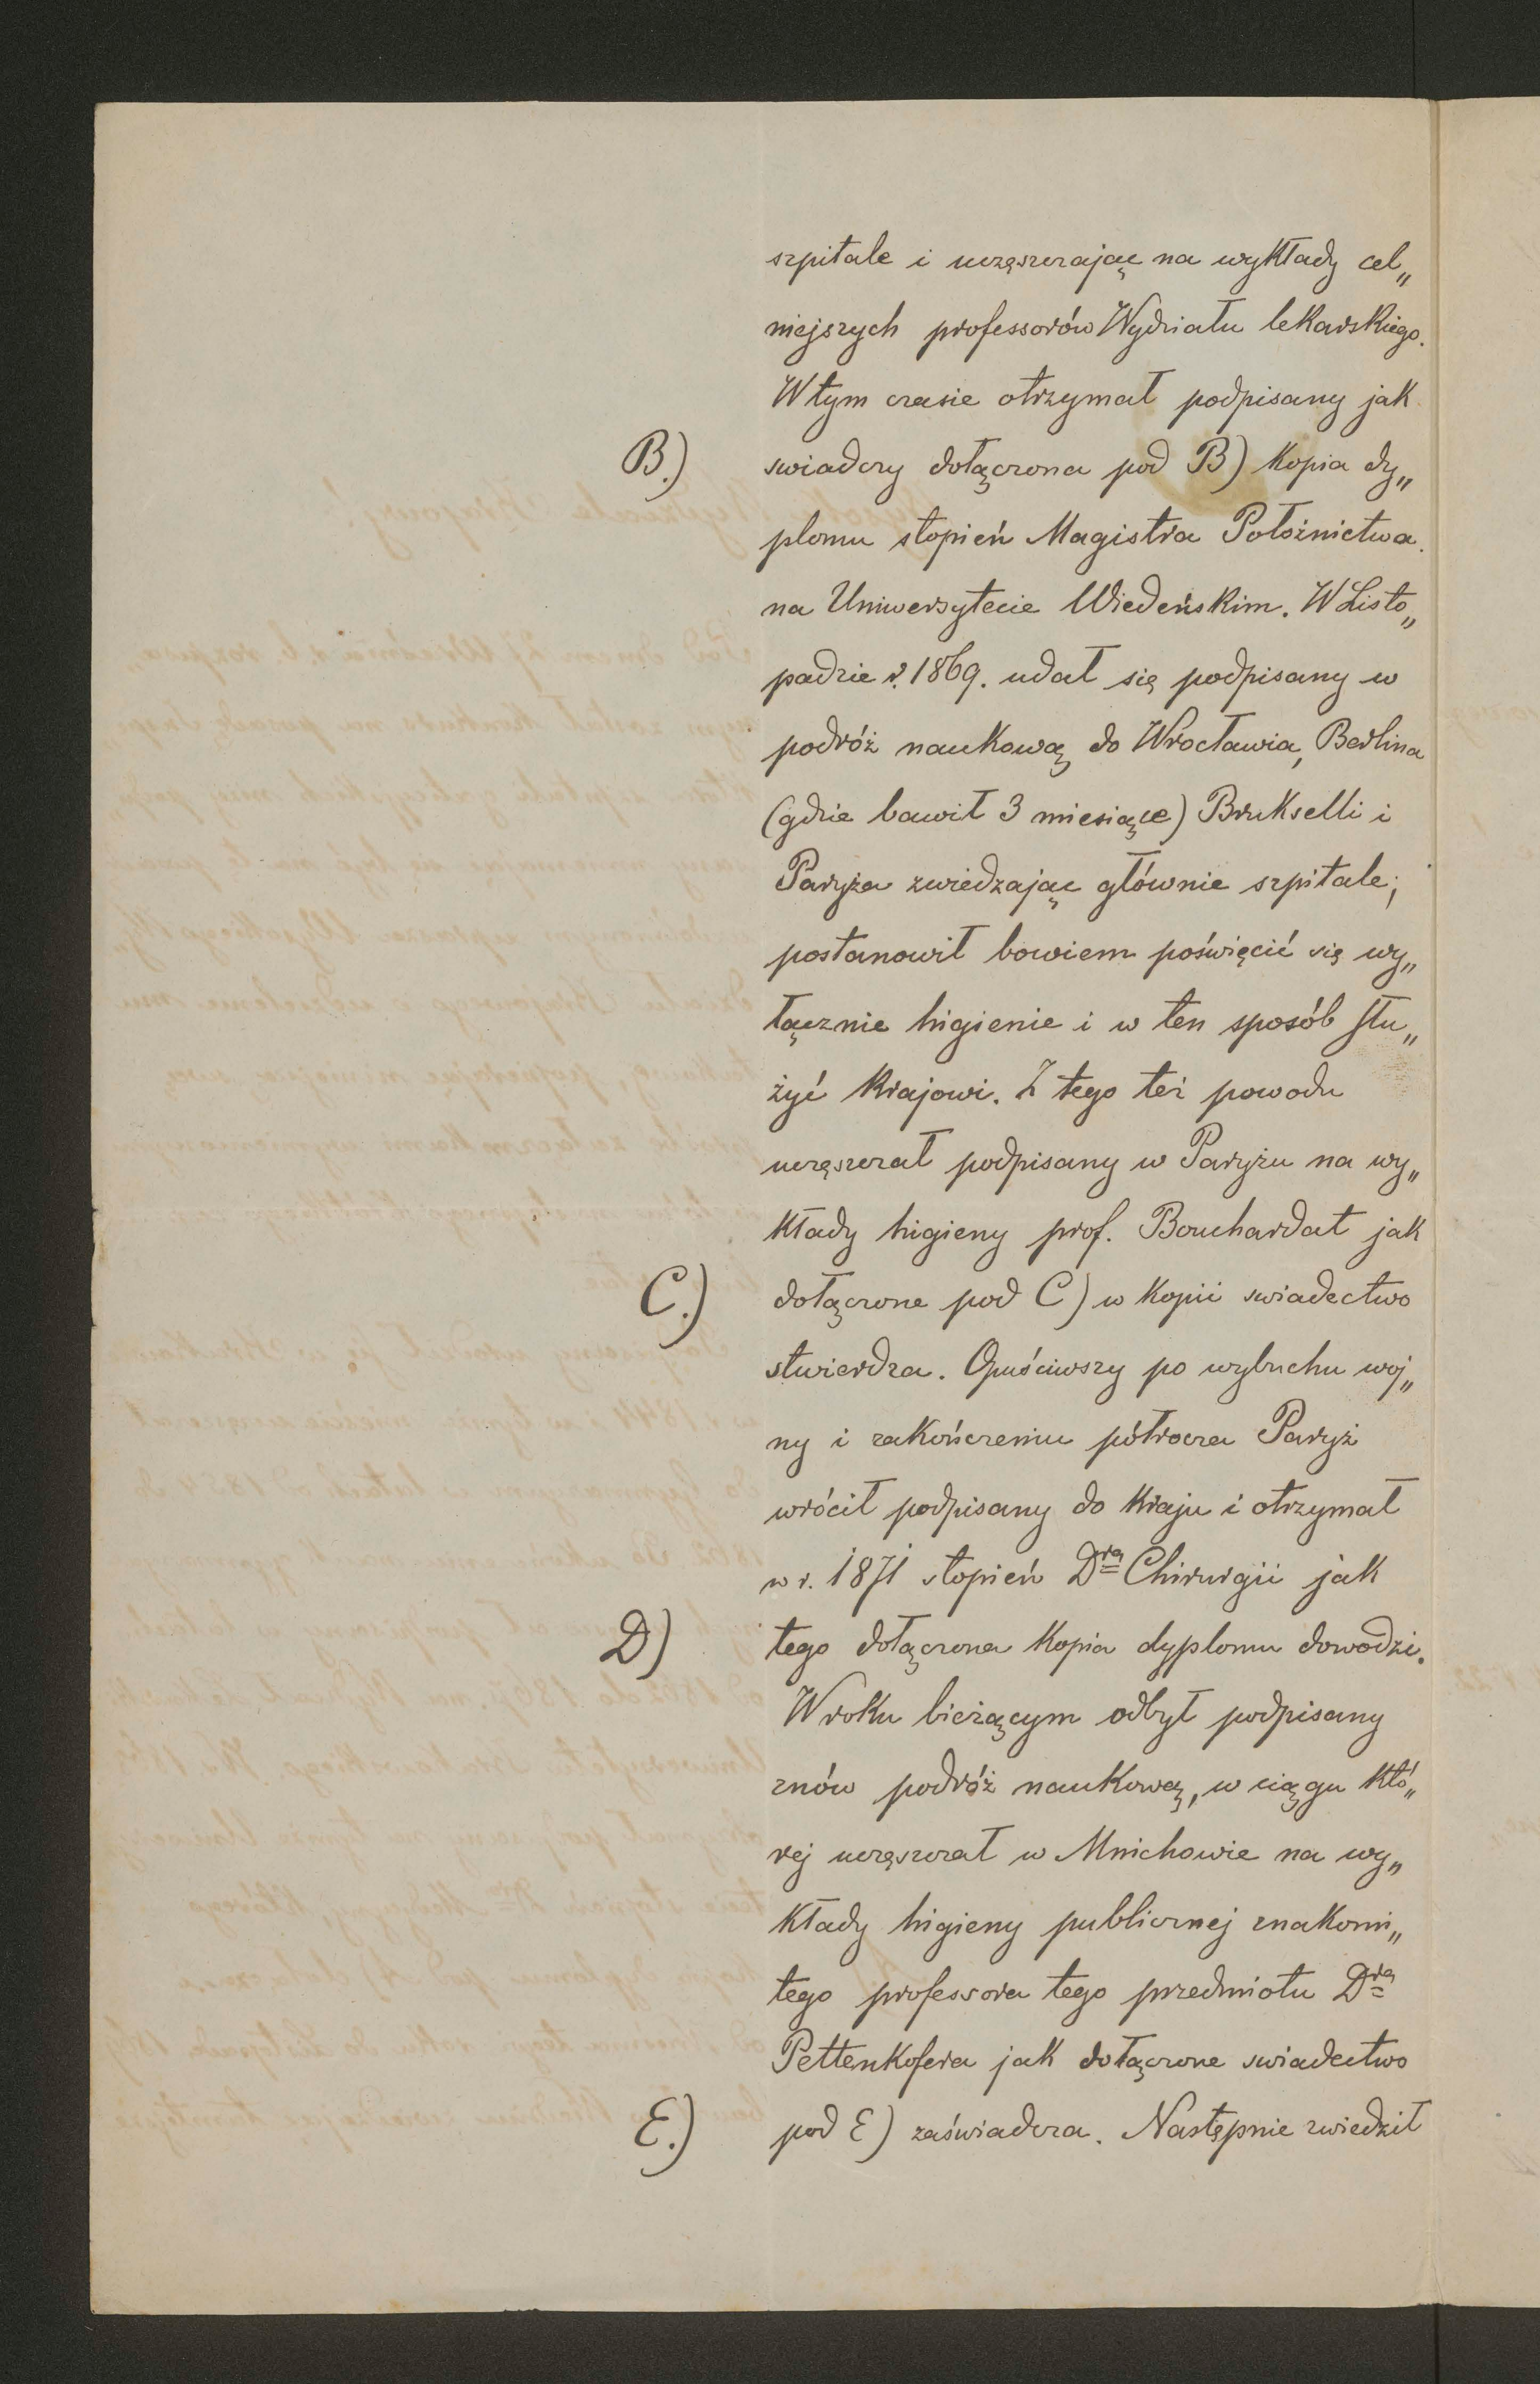 szpitale i uczęszczając na wykłady cel„
niejszych professorów Wydziału lekarskiego.
W tym czasie otrzymał podpisany jak
B.) swiadczy dołączona pod B) kopia dy„
plomu stopień Magistra Położnictwa
na Uniwersytecie Wiedeńskim. W Listo„
padzie r. 1869. udał się podpisany w
podróż naukową do Wrocławia, Berlina
(gdzie bawił 3 miesiące) Brukselli i
Paryża zwiedzając głównie szpitale;
postanowił bowiem poświęcić się wy„
łącznie higienie i w ten sposób słu„
żyć krajowi. Z tego też powodu
uczęszczał podpisany w Paryżu na wy„
kłady higieny prof. Bouchardat jak
C.) dołączone pod C) w kopii swiadectwo
stwierdza. Opuściwszy po wybuchu woj„
ny i zakończeniu półrocza Paryż
wrócił podpisany do kraju i otrzymał
w r. 1871 stopień Dra Chirurgii jak
D) tego dołączona kopia dyplomu dowodzi.
W roku bieżącym odbył podpisany
znów podróż naukową, w ciągu któ„
rej uczęszczał w Mnichowie na wy„
kłady higieny publicznej znakomi„
tego professora tego przedmiotu Dra
Pettenkofera jak dołączone swiadectwo
E.) pod E) zaświadcza. Następnie zwiedził